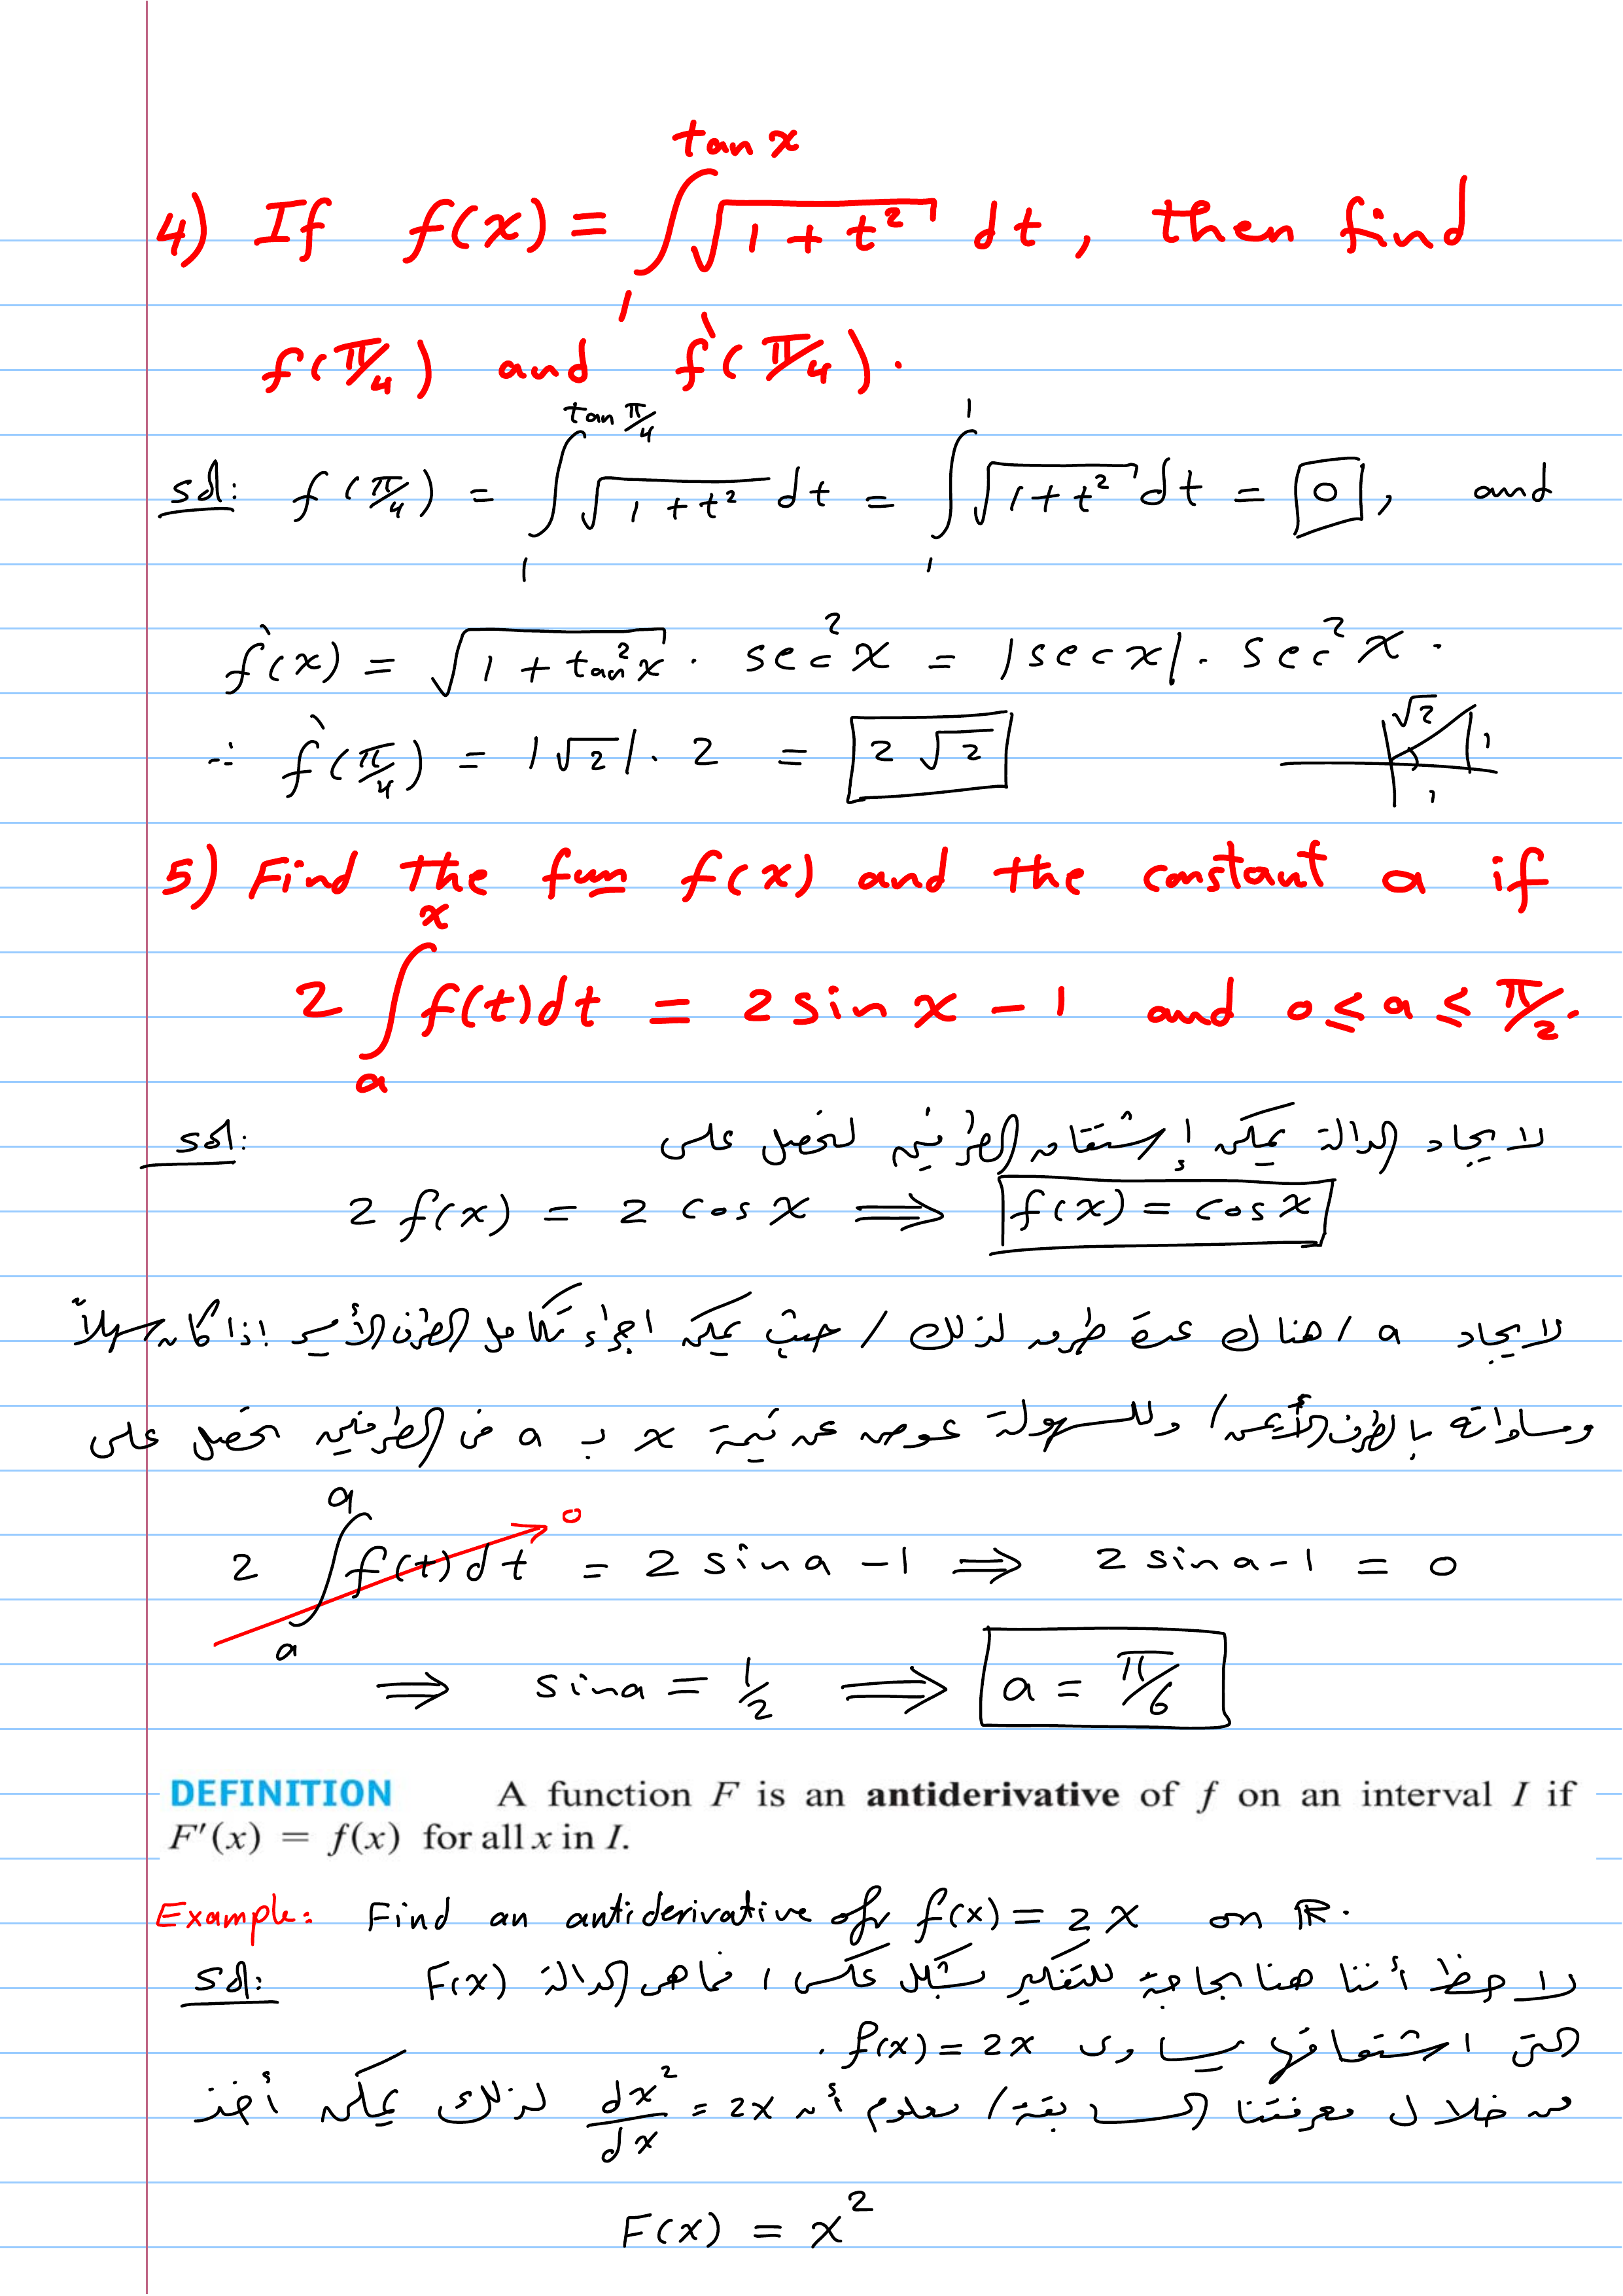 4) If f(x) = ∫₁^{tan x} √(1 + t²) dt, then find
f(π/4) and f`(π/4).
sol: f(π/4) = ∫₁^{tan π/4} √(1 + t²) dt = ∫₁^1 √(1 + t²) dt = 0, and
f`(x) = √(1 + tan²x) · sec²x = |sec x| · sec²x.
∴ f`(π/4) = |√2| · 2 = 2√2
√2 1 1
5) Find the fun f(x) and the constant a if
2 ∫ₐ^x f(t)dt = 2 sin x − 1 and 0 ≤ a ≤ π/2.
sol: لايجاد الدالة يمكن إشتقاق الطرفين لنحصل على
2 f(x) = 2 cos x ⟹ f(x) = cos x
لايجاد a، هناك عدة طرق لذلك، حيث يمكن اجراء تكامل الطرف الأيسر إذا كان سهلاً
ومساواته بالطرف الأيمن، وللسهولة عوض عن قيمة x بـ a في الطرفين نحصل على
2 ∫ₐ^a f(t)dt → 0 = 2 sin a − 1 ⟹ 2 sin a − 1 = 0
⟹ sin a = 1/2 ⟹ a = π/6
DEFINITION A function F is an antiderivative of f on an interval I if
F′(x) = f(x) for all x in I.
Example: Find an antiderivative of f(x) = 2x on ℝ.
sol: لاحظ أننا هنا بحاجة للتفكير بشكل عكسي، فما هي الدالة F(x)
التي اشتقاقها يساوي f(x) = 2x.
من خلال معرفتنا السابقة، معلوم أن dx²/dx = 2x لذلك يمكن أخذ
F(x) = x²